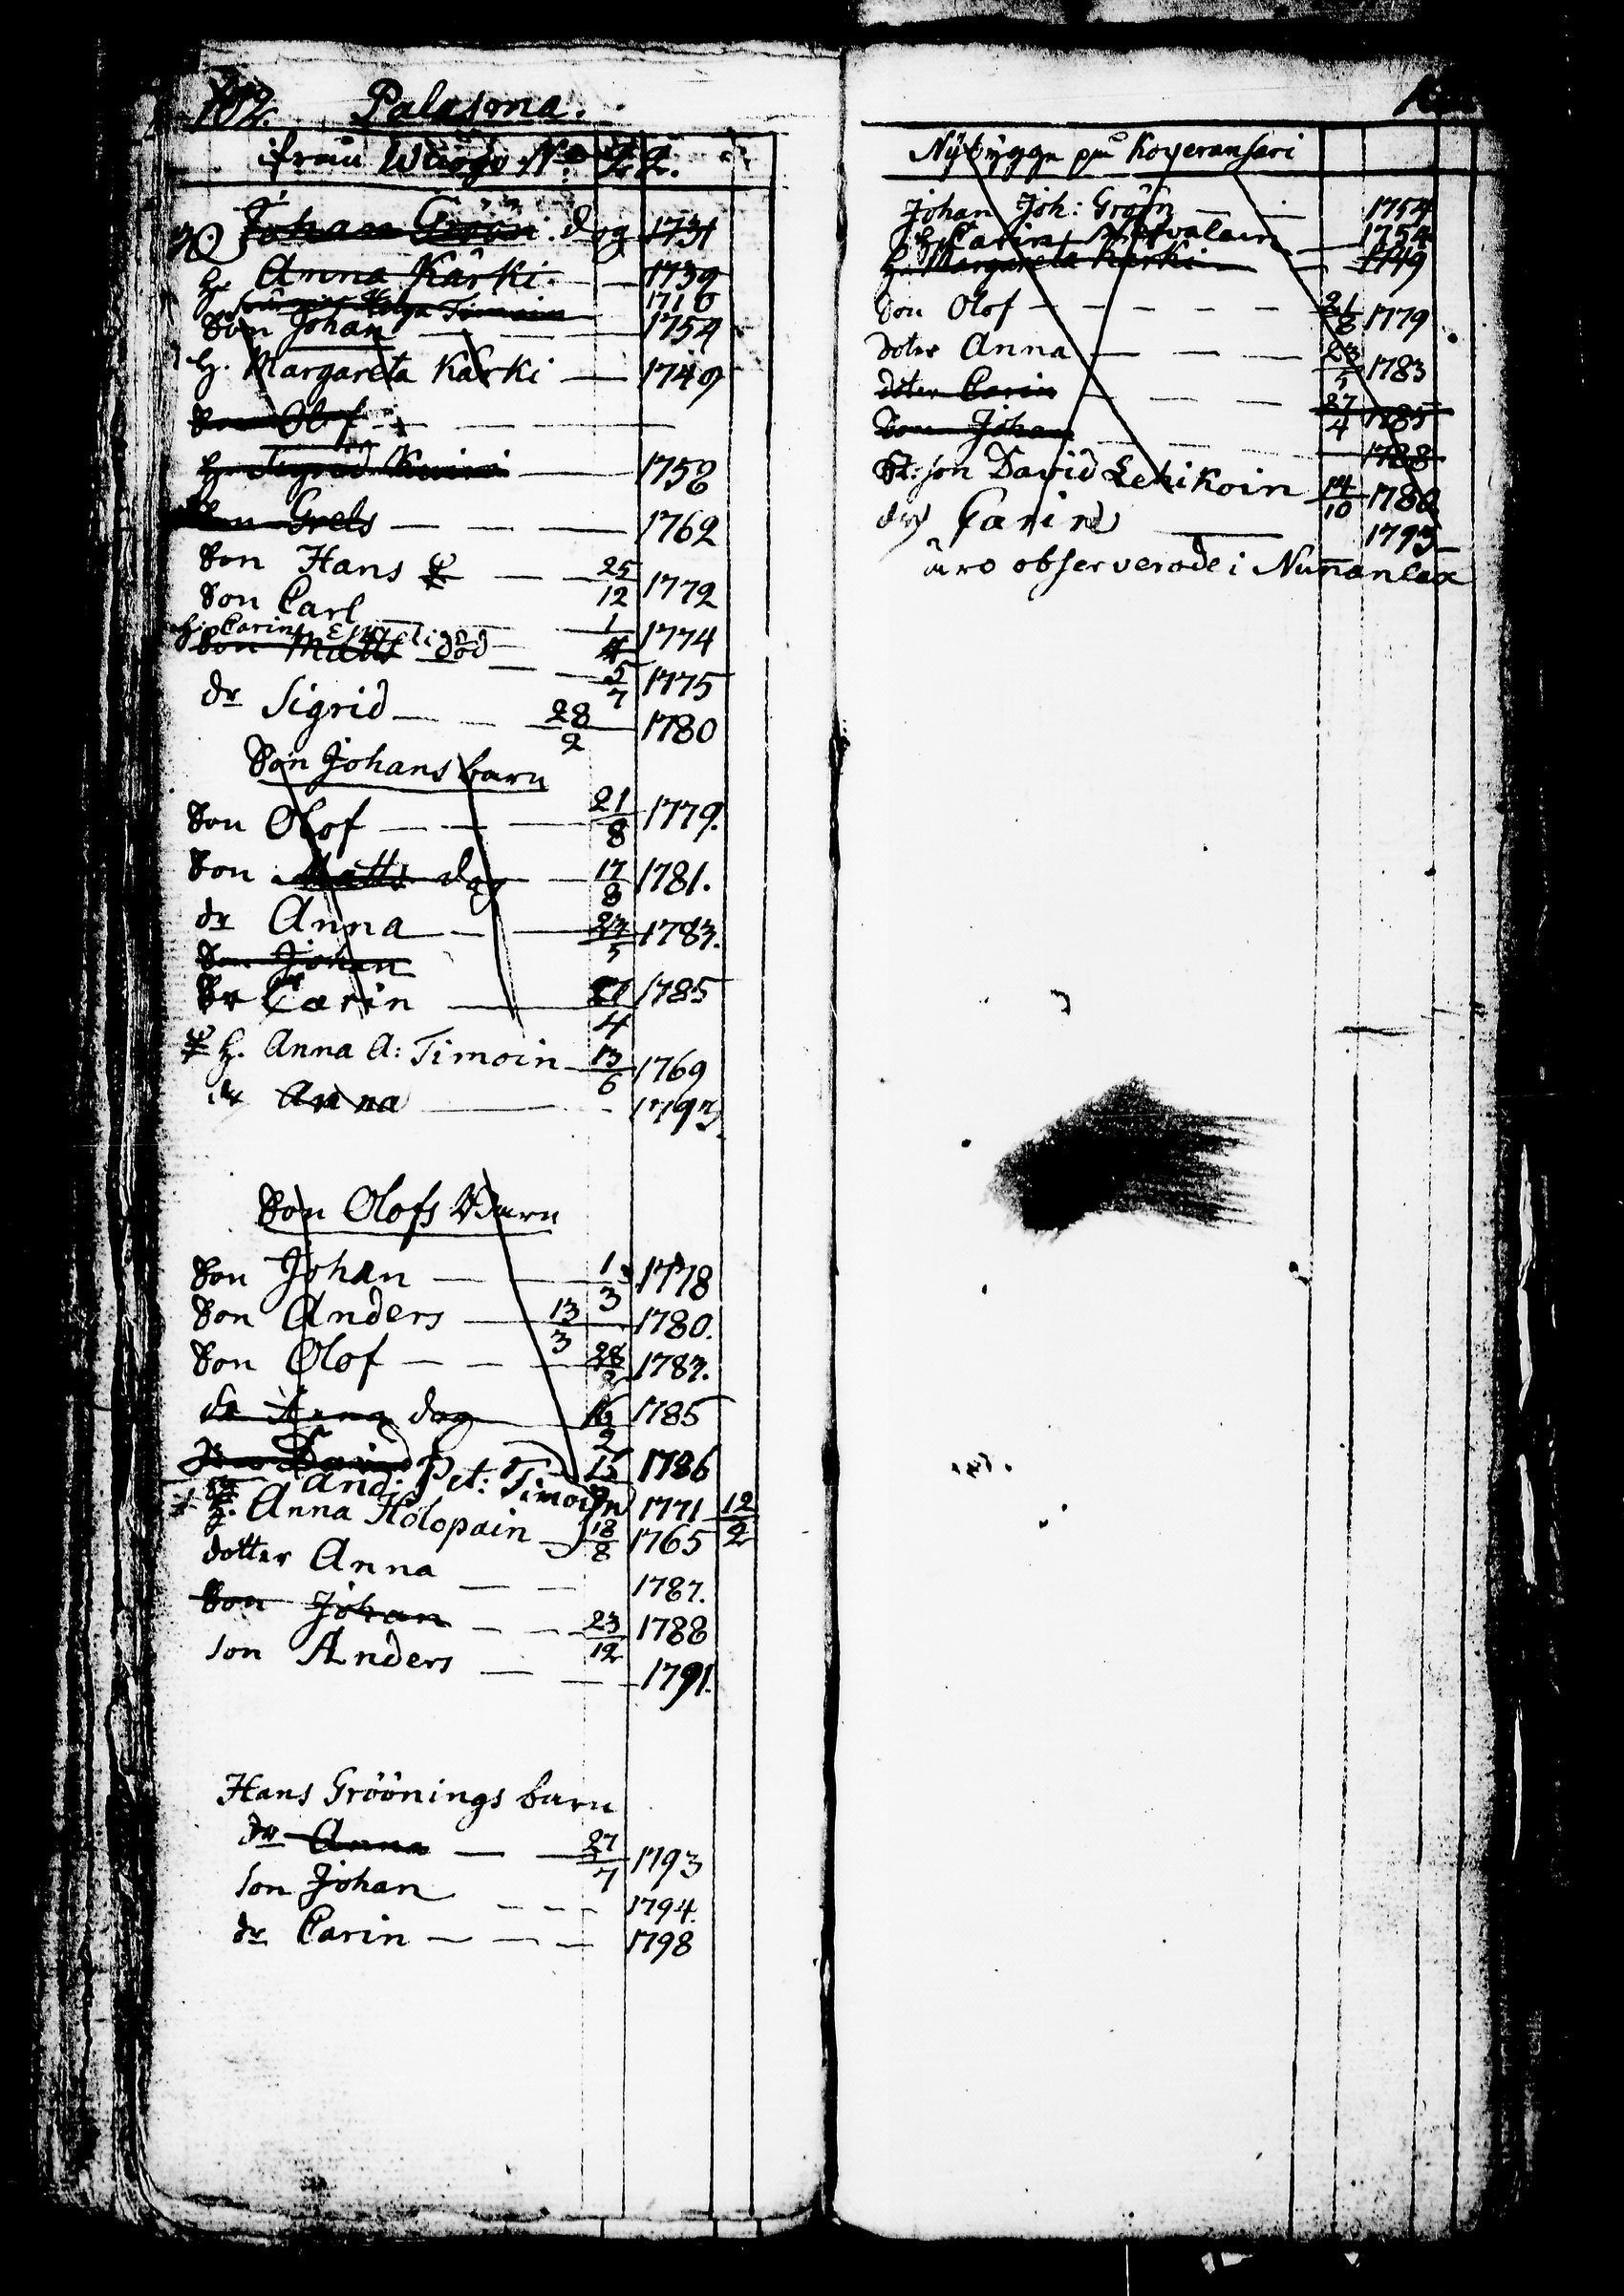 182. Palasma.
ifrån Wuojo No. 22.
Johan Gröön. dog 1731
H. Anna Kärki. — 1739
Helga Timoin 1710
Son Johan — 1754
H. Margareta Kärki — 1749
Son Olof — — —
H. Sigrid — 1758
Son Grels — — 1762
Son Hans — 25/12 1772
Son Carl — 1/4 1774
H. Carin död
Son Matts — 5/7 1775
dr Sigrid — — 28/2 1780
Son Johans barn
Son Olof — — — 21/8 1779.
Son Matts dog — 17/8 1781.
dr Anna — — 23/5 1783.
Son Johan
Dr Carin — 27/4 1785
H. Anna A: Timoin — 13/6 1769
dr Anna — 1793
Son Olofs Barn
Son Johan — — 1/3 1778
Son Anders — 13/3 1780.
Son Olof — — — 28/2 1783.
dr Anna dog 16/2 1785
15 1786
And: Pet: Timoin 1771 12/2
H. Anna Holopain — 18/8 1765
dotter Anna — — 1787.
Son Johan — — 23/12 1788
son Anders — — 1791.
Hans Gröönings barn
dr Anna — — 27/7 1793
son Johan — — — 1794.
dr Carin — — — 1798
Nybygge på Koyeransari
Johan Joh: Gröön — — 1754
H. Carin — 1754
H. Margareta Kärki — — 1749
Son Olof — — — — 21/8 1779
doter Anna — — — 23/5 1783
doter Carin — — — 27/4 1785
Son Johan — — — 1788
St: son David Lehikoin 14/10 1780
dr Carin — 1793
äro observerade i Nunanlax